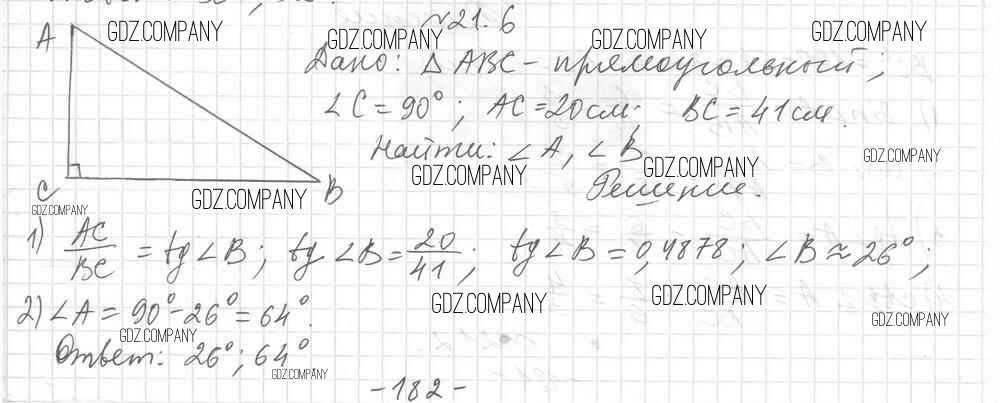 №21.6
A
Дано: △ABC – прямоугольный;
∠C = 90°; AC = 20см; BC = 41см.
Найти: ∠A, ∠B
C B
Решение.
1) AC/BC = tg∠B; tg∠B = 20/41; tg∠B = 0,4878; ∠B ≈ 26°;
2) ∠A = 90° - 26° = 64°.
Ответ: 26°; 64°
- 182 -
GDZ.COMPANY
GDZ.COMPANY
GDZ.COMPANY
GDZ.COMPANY
GDZ.COMPANY
GDZ.COMPANY
GDZ.COMPANY
GDZ.COMPANY
GDZ.COMPANY
GDZ.COMPANY
GDZ.COMPANY
GDZ.COMPANY
GDZ.COMPANY
GDZ.COMPANY